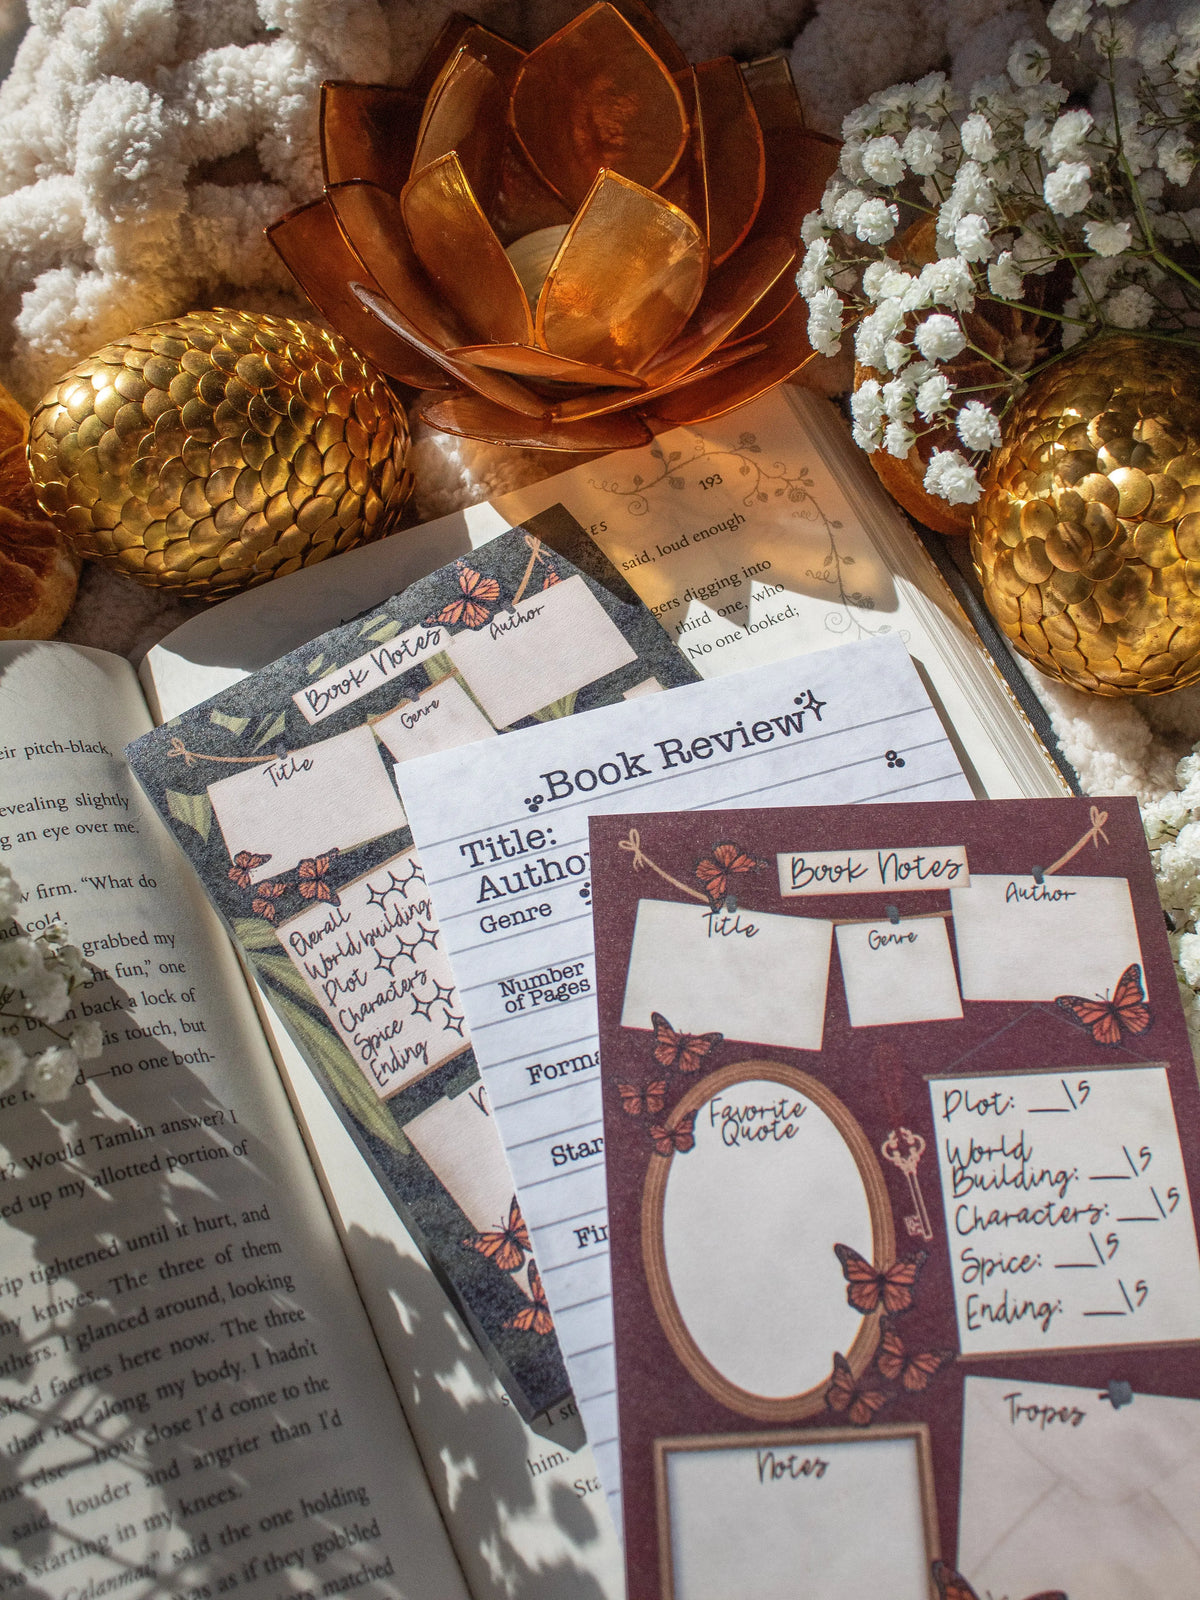 193
said, loud enough
digging into
third one, who
No one looked;
Book Notes
Author
Genre
Title
Overall
World building
Plot
Characters
Spice
Ending
Book Review
Title:
Genre
Number
of Pages
Book Notes
Title
Genre
Author
Favorite
Quote
Plot: __\5
World
Building: __\5
Characters: __\5
Spice: __\5
Ending: __\5
Notes
Tropes
pitch-black,
revealing slightly
an eye over me.
firm. "What do
cold.
grabbed my
fun," one
back a lock of
touch, but
—no one both-
Would Tamlin answer? I
up my allotted portion of
tightened until it hurt, and
my knives. The three of them
I glanced around, looking
faeries here now. The three
that ran along my body. I hadn't
else—how close I'd come to the
said, louder and angrier than I'd
starting in my knees.
Calanmai," said the one holding
as if they gobbled
matched
him.